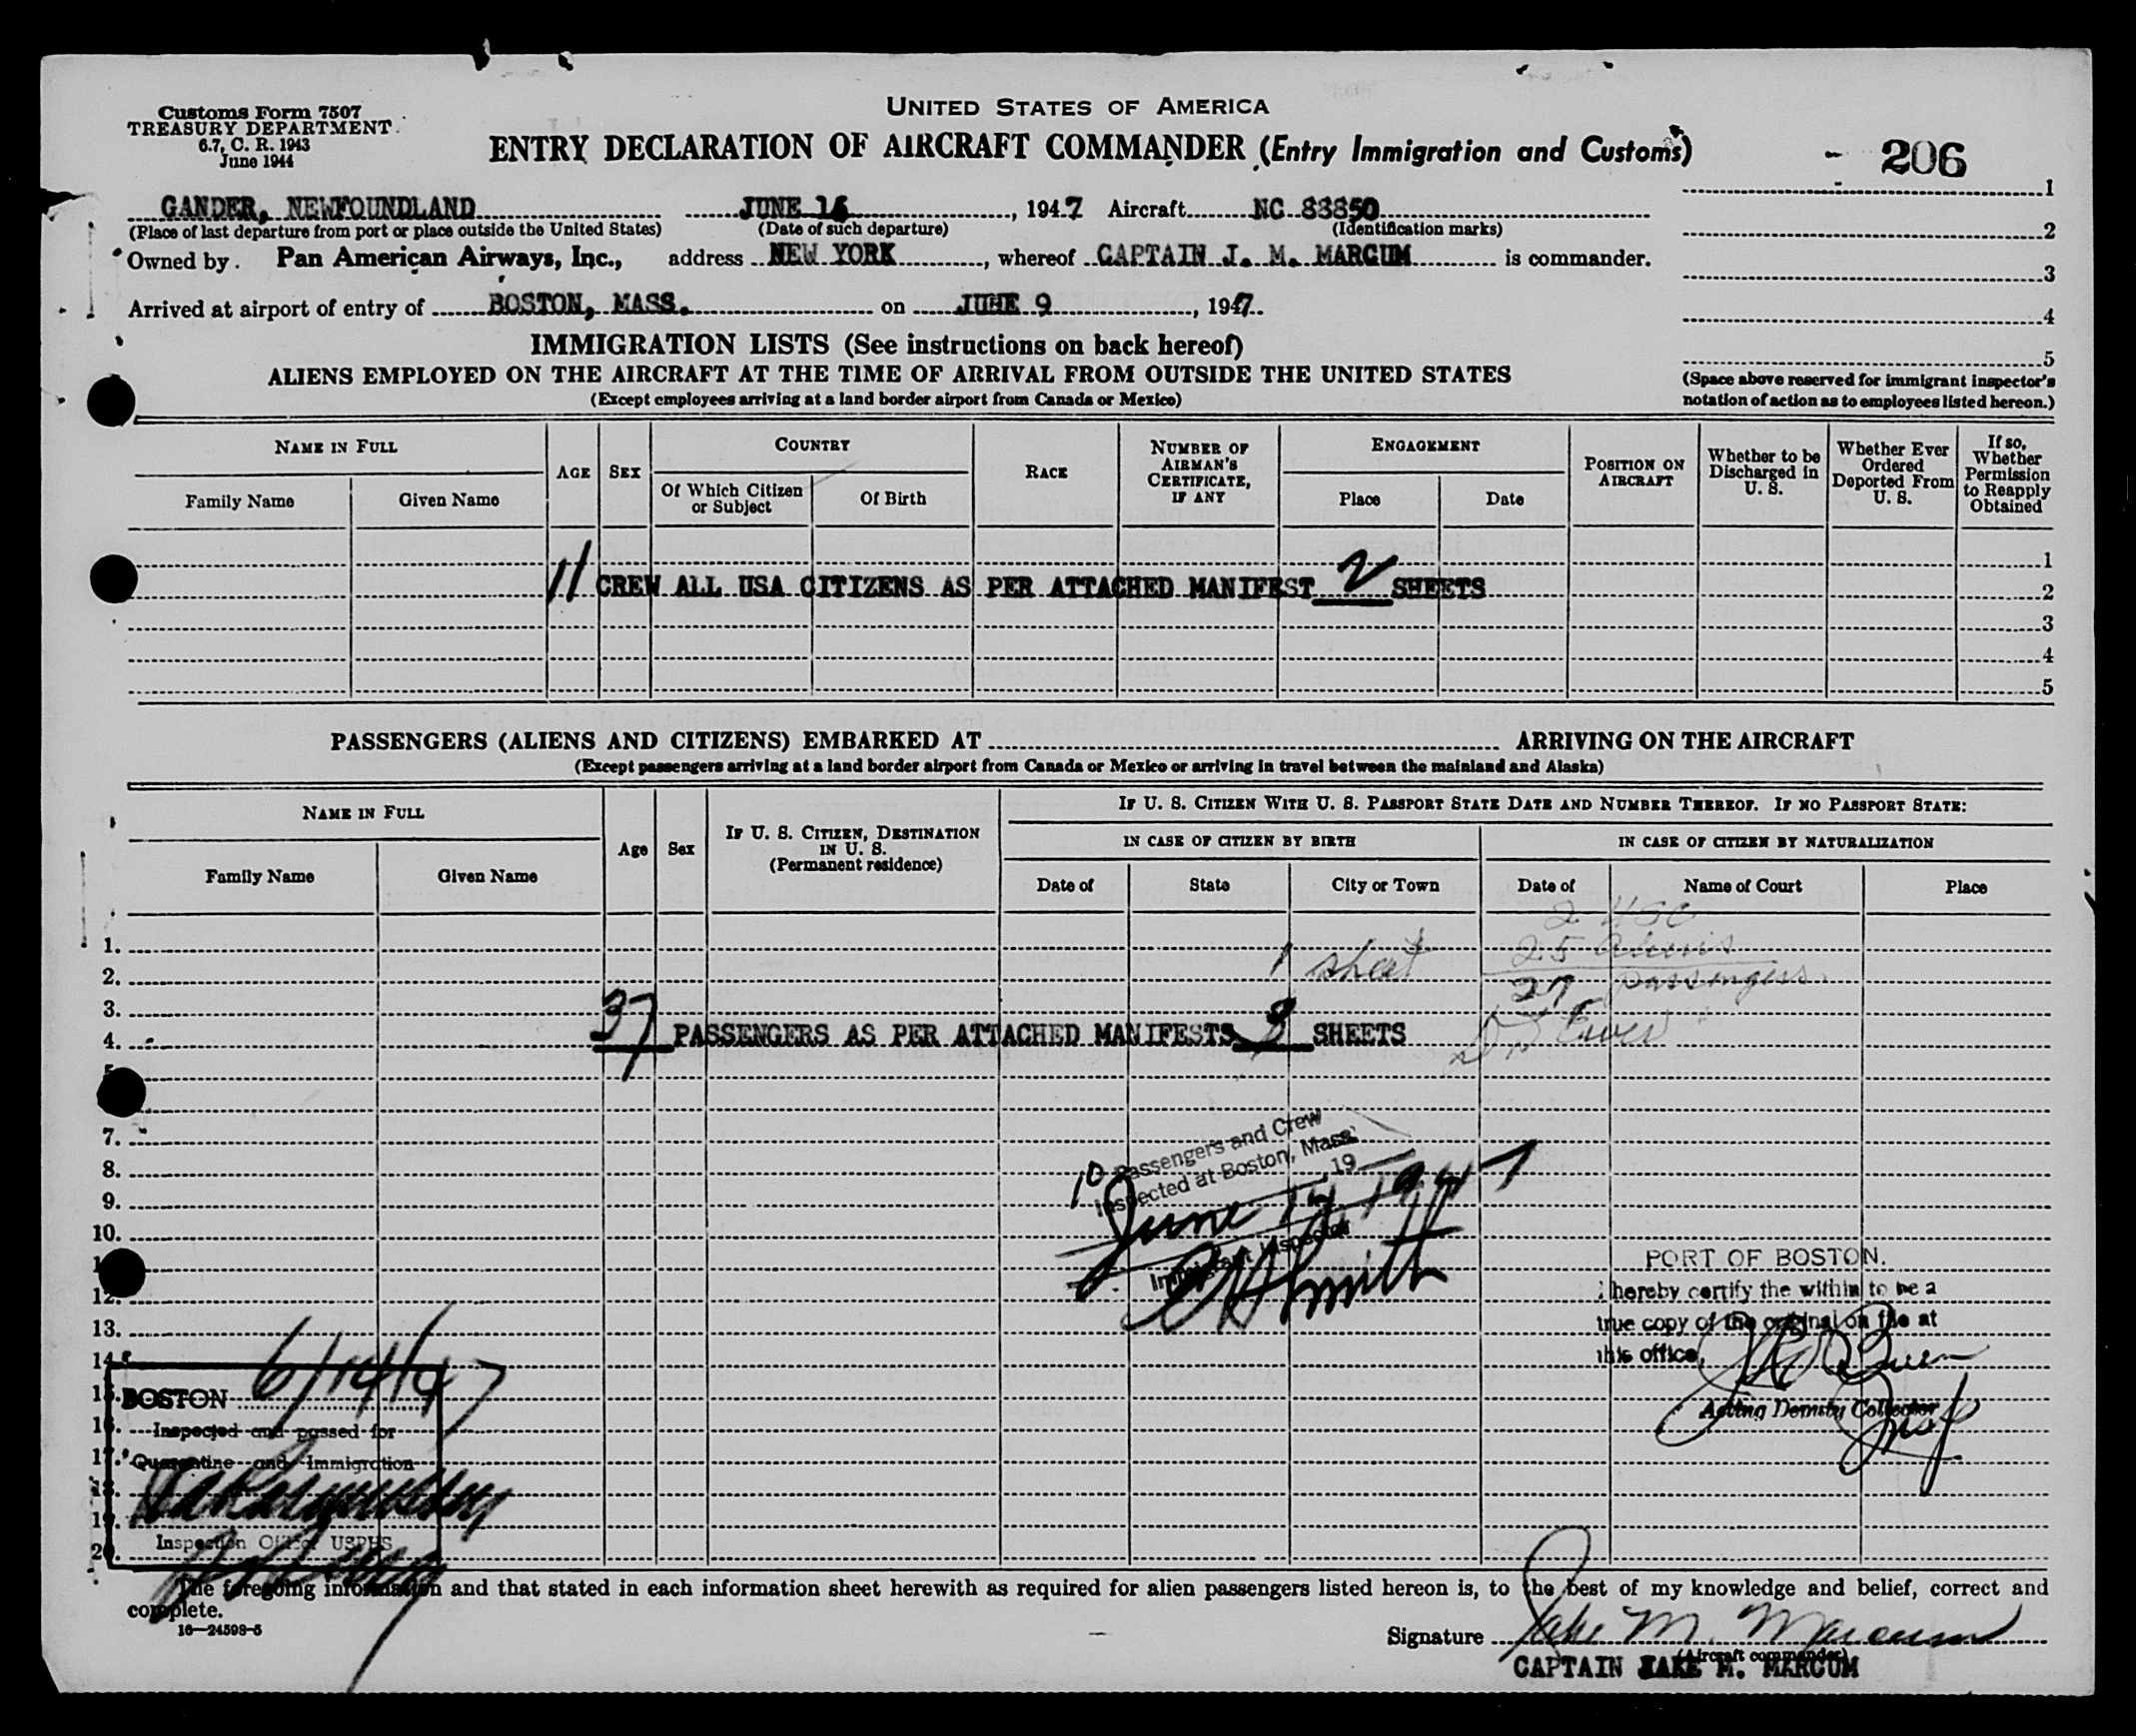 Customs Form 7507
TREASURY DEPARTMENT
6.7, C. R. 1943
June 1944
UNITED STATES OF AMERICA
ENTRY DECLARATION OF AIRCRAFT COMMANDER (Entry Immigration and Customs)
- 206
GANDER, NEWFOUNDLAND JUNE , 1947 Aircraft NC 88850
(Place of last departure from port or place outside the United States) (Date of such departure) (Identification marks)
Owned by Pan American Airways, Inc., address NEW YORK, whereof CAPTAIN J. M. MARCUM is commander.
Arrived at airport of entry of BOSTON, MASS. on JUNE 9, 1947
1
2
3
4
5
(Space above reserved for immigrant inspector's
notation of action as to employees listed hereon.)
IMMIGRATION LISTS (See instructions on back hereof)
ALIENS EMPLOYED ON THE AIRCRAFT AT THE TIME OF ARRIVAL FROM OUTSIDE THE UNITED STATES
(Except employees arriving at a land border airport from Canada or Mexico)
NAME IN FULL
Family Name Given Name
AGE SEX
COUNTRY
Of Which Citizen or Subject
Of Birth
RACE
NUMBER OF AIRMAN'S CERTIFICATE, IF ANY
ENGAGEMENT
Place Date
POSITION ON AIRCRAFT
Whether to be Discharged in U. S.
Whether Ever Ordered Deported From U. S.
If so, Whether Permission to Reapply Obtained
1
11 CREW ALL USA CITIZENS AS PER ATTACHED MANIFEST 2 SHEETS 2
3
4
5
PASSENGERS (ALIENS AND CITIZENS) EMBARKED AT ARRIVING ON THE AIRCRAFT
(Except passengers arriving at a land border airport from Canada or Mexico or arriving in travel between the mainland and Alaska)
NAME IN FULL
Family Name Given Name
Age Sex
IF U. S. CITIZEN, DESTINATION IN U. S.
(Permanent residence)
IF U. S. CITIZEN WITH U. S. PASSPORT STATE DATE AND NUMBER THEREOF. IF NO PASSPORT STATE:
IN CASE OF CITIZEN BY BIRTH IN CASE OF CITIZEN BY NATURALIZATION
Date of State City or Town Date of Name of Court Place
2 USC
1. 25 Aliens
2. 1 sheet 27 passengers
3.
4. 37 PASSENGERS AS PER ATTACHED MANIFESTS 3 SHEETS
7.
8.
9.
10.
12.
13.
14.
15.
16.
17.
18.
19.
20.
10 Passengers and Crew
Inspected at Boston, Mass.
19
June 14 1947
Immigrant Inspector
Smith
PORT OF BOSTON.
I hereby certify the within to be a
true copy of the original on file at
this office.
Acting Deputy Collector
BOSTON 6/14/47
Inspected and passed for
Quarantine and Immigration
Inspection Officer USPHS
The foregoing information and that stated in each information sheet herewith as required for alien passengers listed hereon is, to the best of my knowledge and belief, correct and
complete.
16—24598-5
Signature Jake M. Marcum
(Aircraft commander)
CAPTAIN JAKE M. MARCUM